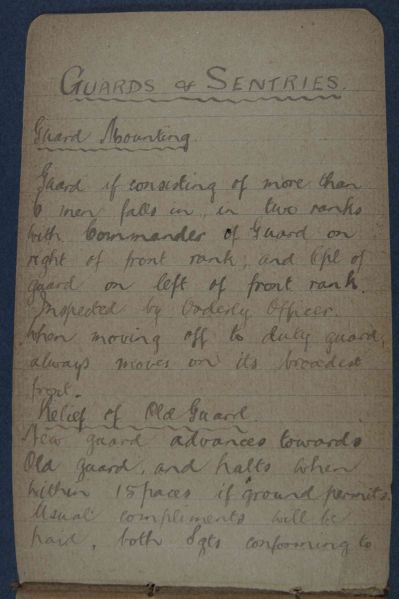 GUARDS & SENTRIES.
Guard Mounting
Guard if consisting of more than
6 men falls in, in two ranks
with Commander of Guard on
right of front rank, and Cpl of
guard on left of front rank.
Inspected by Orderly Officer.
When moving off to duty guard,
always moves on its broadest
front.
Relief of Old Guard.
New guard advances towards
Old guard, and halts when
within 15 paces if ground permits.
Usual compliments will be
paid, both Sgts conforming to